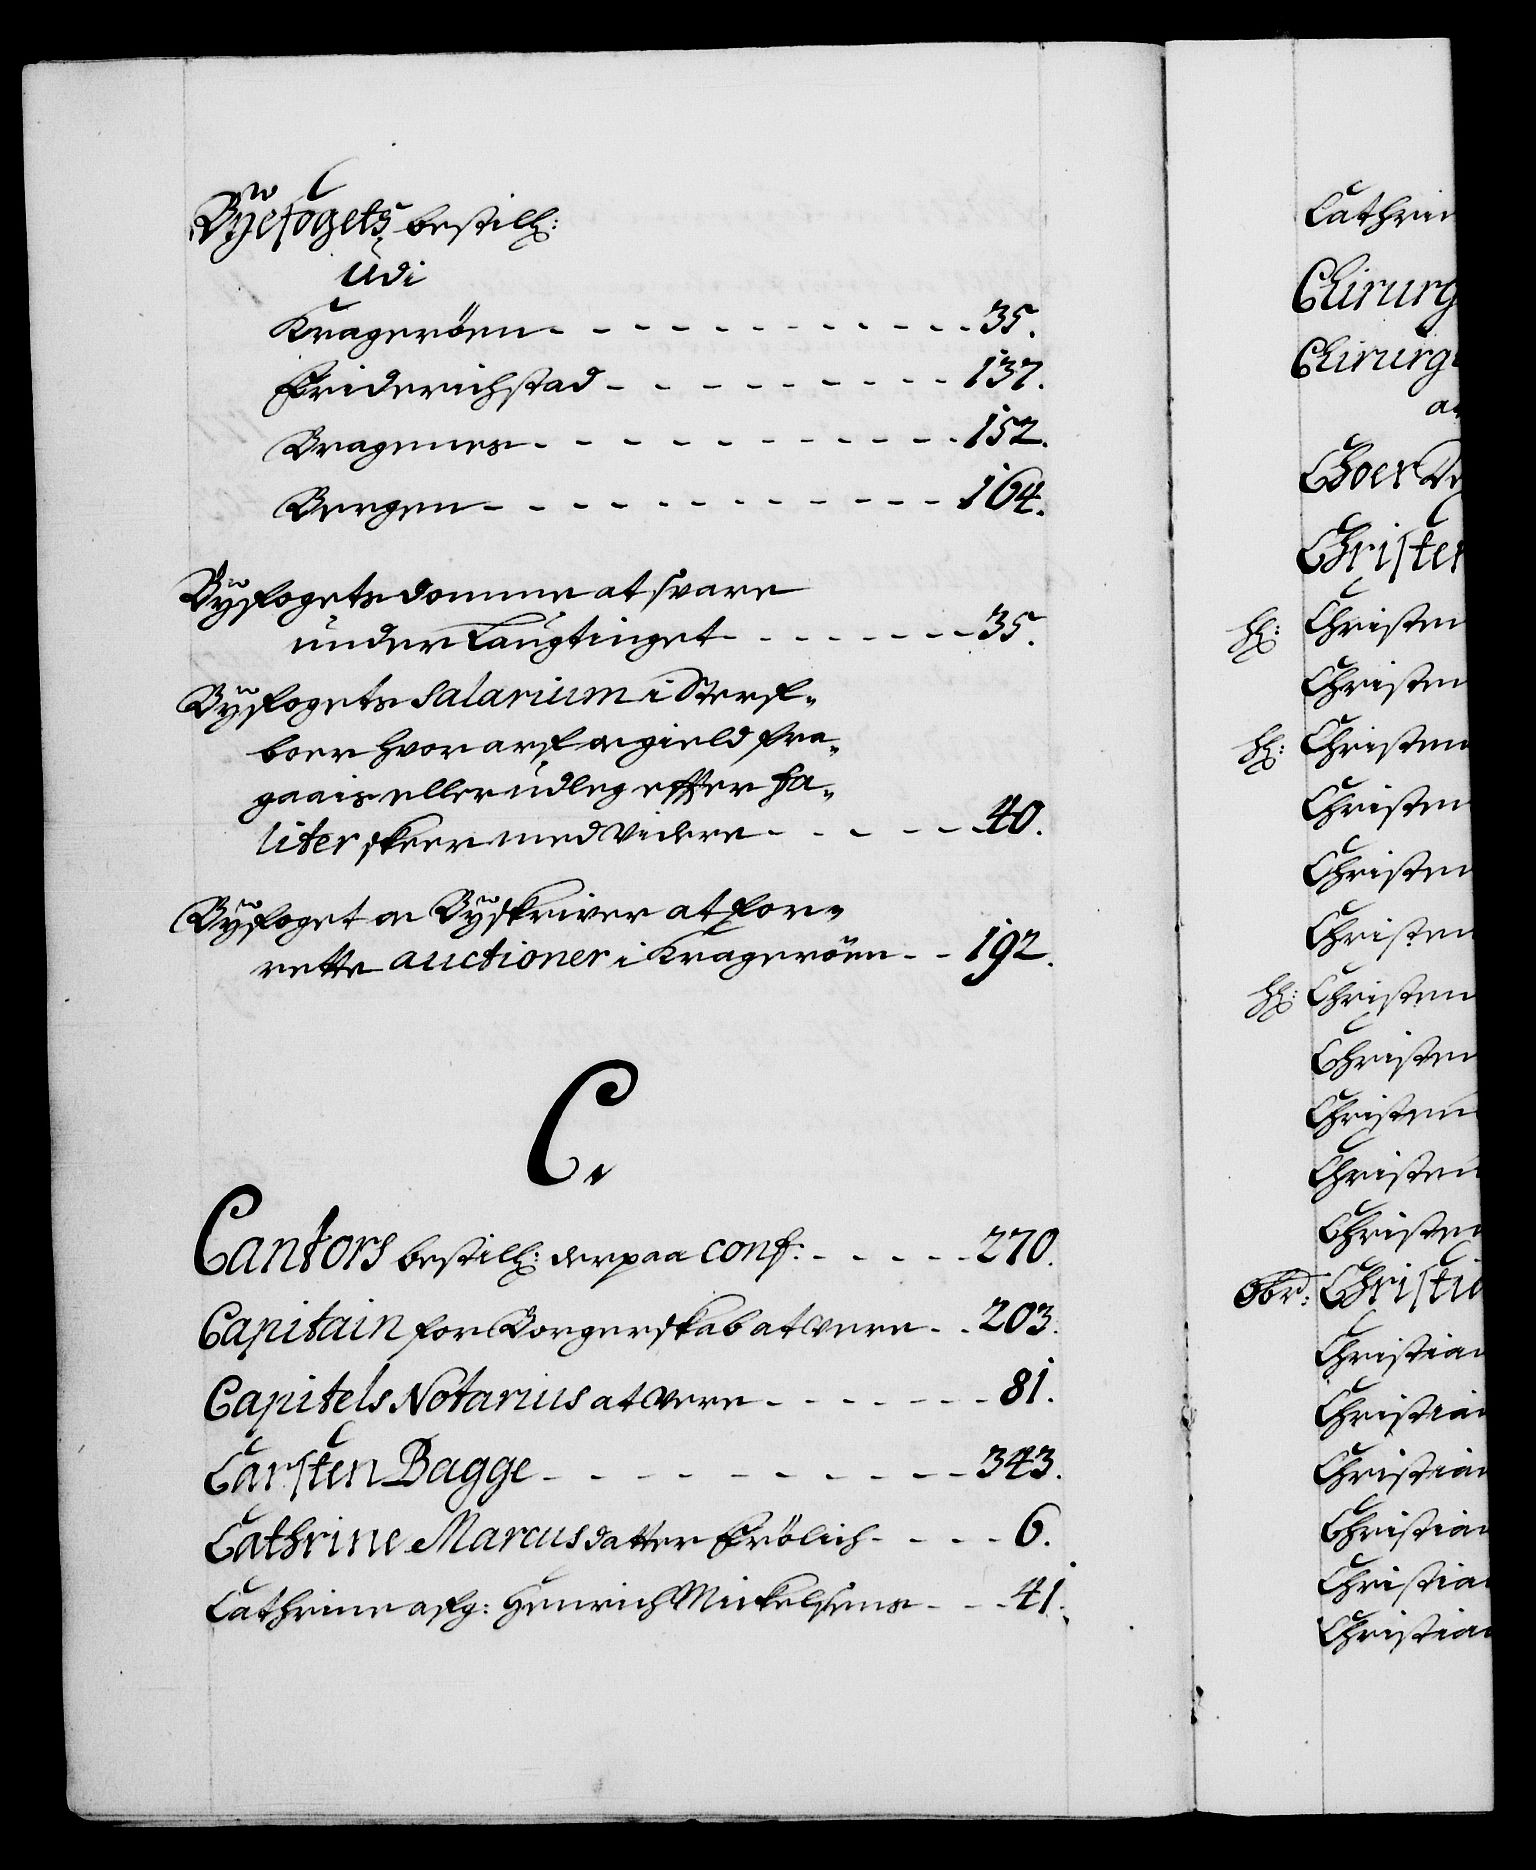 Byefogets bestill:
udi
Krageröen - - - - - - - - - - - - 35.
Friderichstad - - - - - - - - - 137.
Bragernes - - - - - - - - - - - 152.
Bergen - - - - - - - - - - - - 164.
Byefogets domme at svare
under Laugtinget - - - - - - - 35.
Byefogets Salarium i Sterf-
boer hvor arf og gield fra-
gaais eller udleg effter fa-
liter skeer med videre - - - - - 40.
Byefoget og Byskriver at for-
rette auctioner i Krageröen - - 192.
C.
Cantors bestill: derpaa conf: - - - - - 270.
Capitain for Borgerskab at vere - - 203.
Capitels Notarius at vere - - - - - - - 81.
Carsten Bagge - - - - - - - - - - 343.
Cathrine Marcusdatter Frölich - - - - 6.
Cathrine afg: Henrich Mickelsens - - - 41.
Cathrin
Chirurg
Chirurg
Choer
Christen
Christen
Christen
Christen
Christen
Christen
Christen
Christen
Christen
Christen
Christen
Christen
Obr: Christia
Christian
Christian
Christian
Christian
Christian
Christian